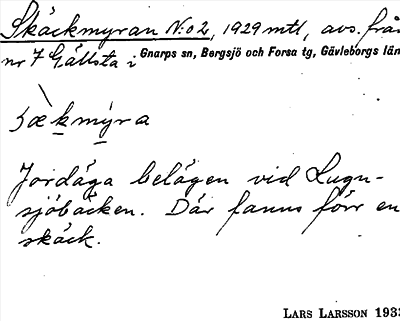 Skäckmyran N:o 2, 1929 mtl, avs. från
nr 7 Gällsta i Gnarps sn, Bergsjö och Forsa tg, Gävleborgs län
Jordäga belägen vid Lugn-
sjöbäcken. Där fanns förr en
skäck.
LARS LARSSON 193